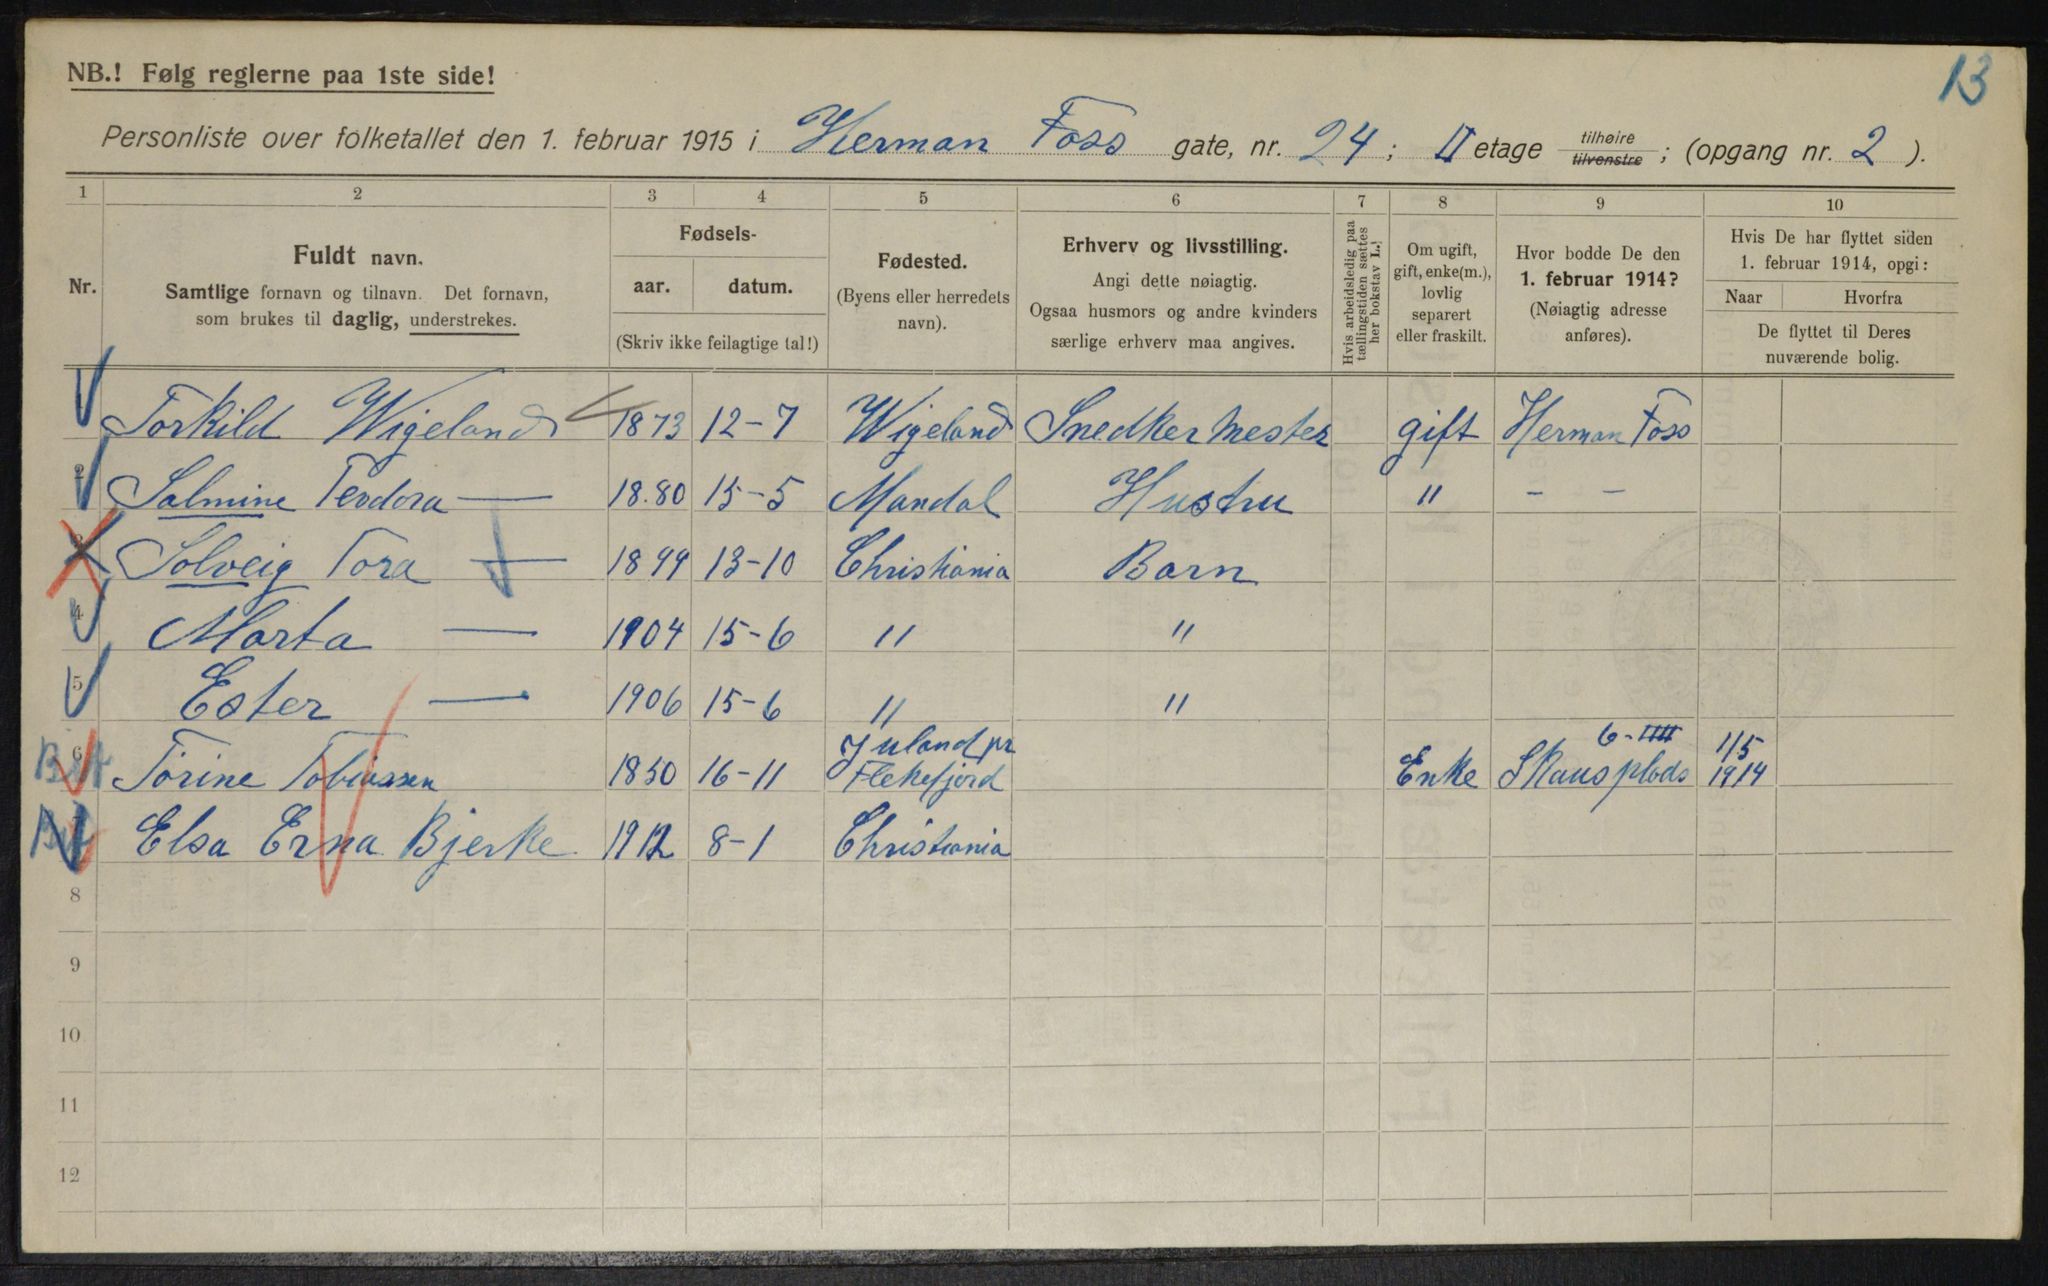 13
NB.! Følg reglerne paa 1ste side!
Personliste over folketallet den 1. februar 1915 i Herman Foss gate, nr. 24; II etage tilhøire tilvenstre; (opgang nr. 2 ).
1 2 3 4 5 6 7 8 9 10
Nr.
Fuldt navn.
Samtlige fornavn og tilnavn. Det fornavn,
som brukes til daglig, understrekes.
Fødsels-
aar. datum.
(Skriv ikke feilagtige tal!)
Fødested.
(Byens eller herredets
navn).
Erhverv og livsstilling.
Angi dette nøiagtig.
Ogsaa husmors og andre kvinders
særlige erhverv maa angives.
Hvis arbeidsledig paa
tællingstiden sættes
her bokstav L.!
Om ugift,
gift, enke(m.),
lovlig
separert
eller fraskilt.
Hvor bodde De den
1. februar 1914?
(Nøiagtig adresse
anføres).
Hvis De har flyttet siden
1. februar 1914, opgi:
Naar Hvorfra
De flyttet til Deres
nuværende bolig.
Torkild Wigeland 1873 12-7 Wigeland Snedker Mester gift Herman Foss
2 Salmine Teodora — 18.80 15-5 Mandal Hustru " - -
3 Solveig Tora — 1899 13-10 Christiania Barn
4 Marta — 1904 15-6 " "
5 Ester — 1906 15-6 " "
6 Torine Tobiassen 1850 16-11 Juland pr Flekefjord Enke Skausplads 6 1/5 1914
7 Elsa Erna Bjerke 1912 8-1 Christiania
8
9
10
11
12